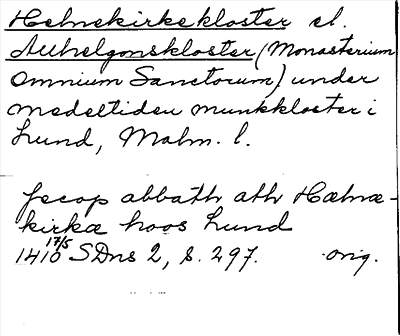 Helnekirkekloster el.
Allhelgonskloster (Monasterium
Omnium Sanctorum) under
medeltiden munkkloster i
Lund, Malm. l.
Jecop abbath ath Hælnæ-
kirkæ hoos Lund
1410 17/5 SDns 2, s. 297. orig.